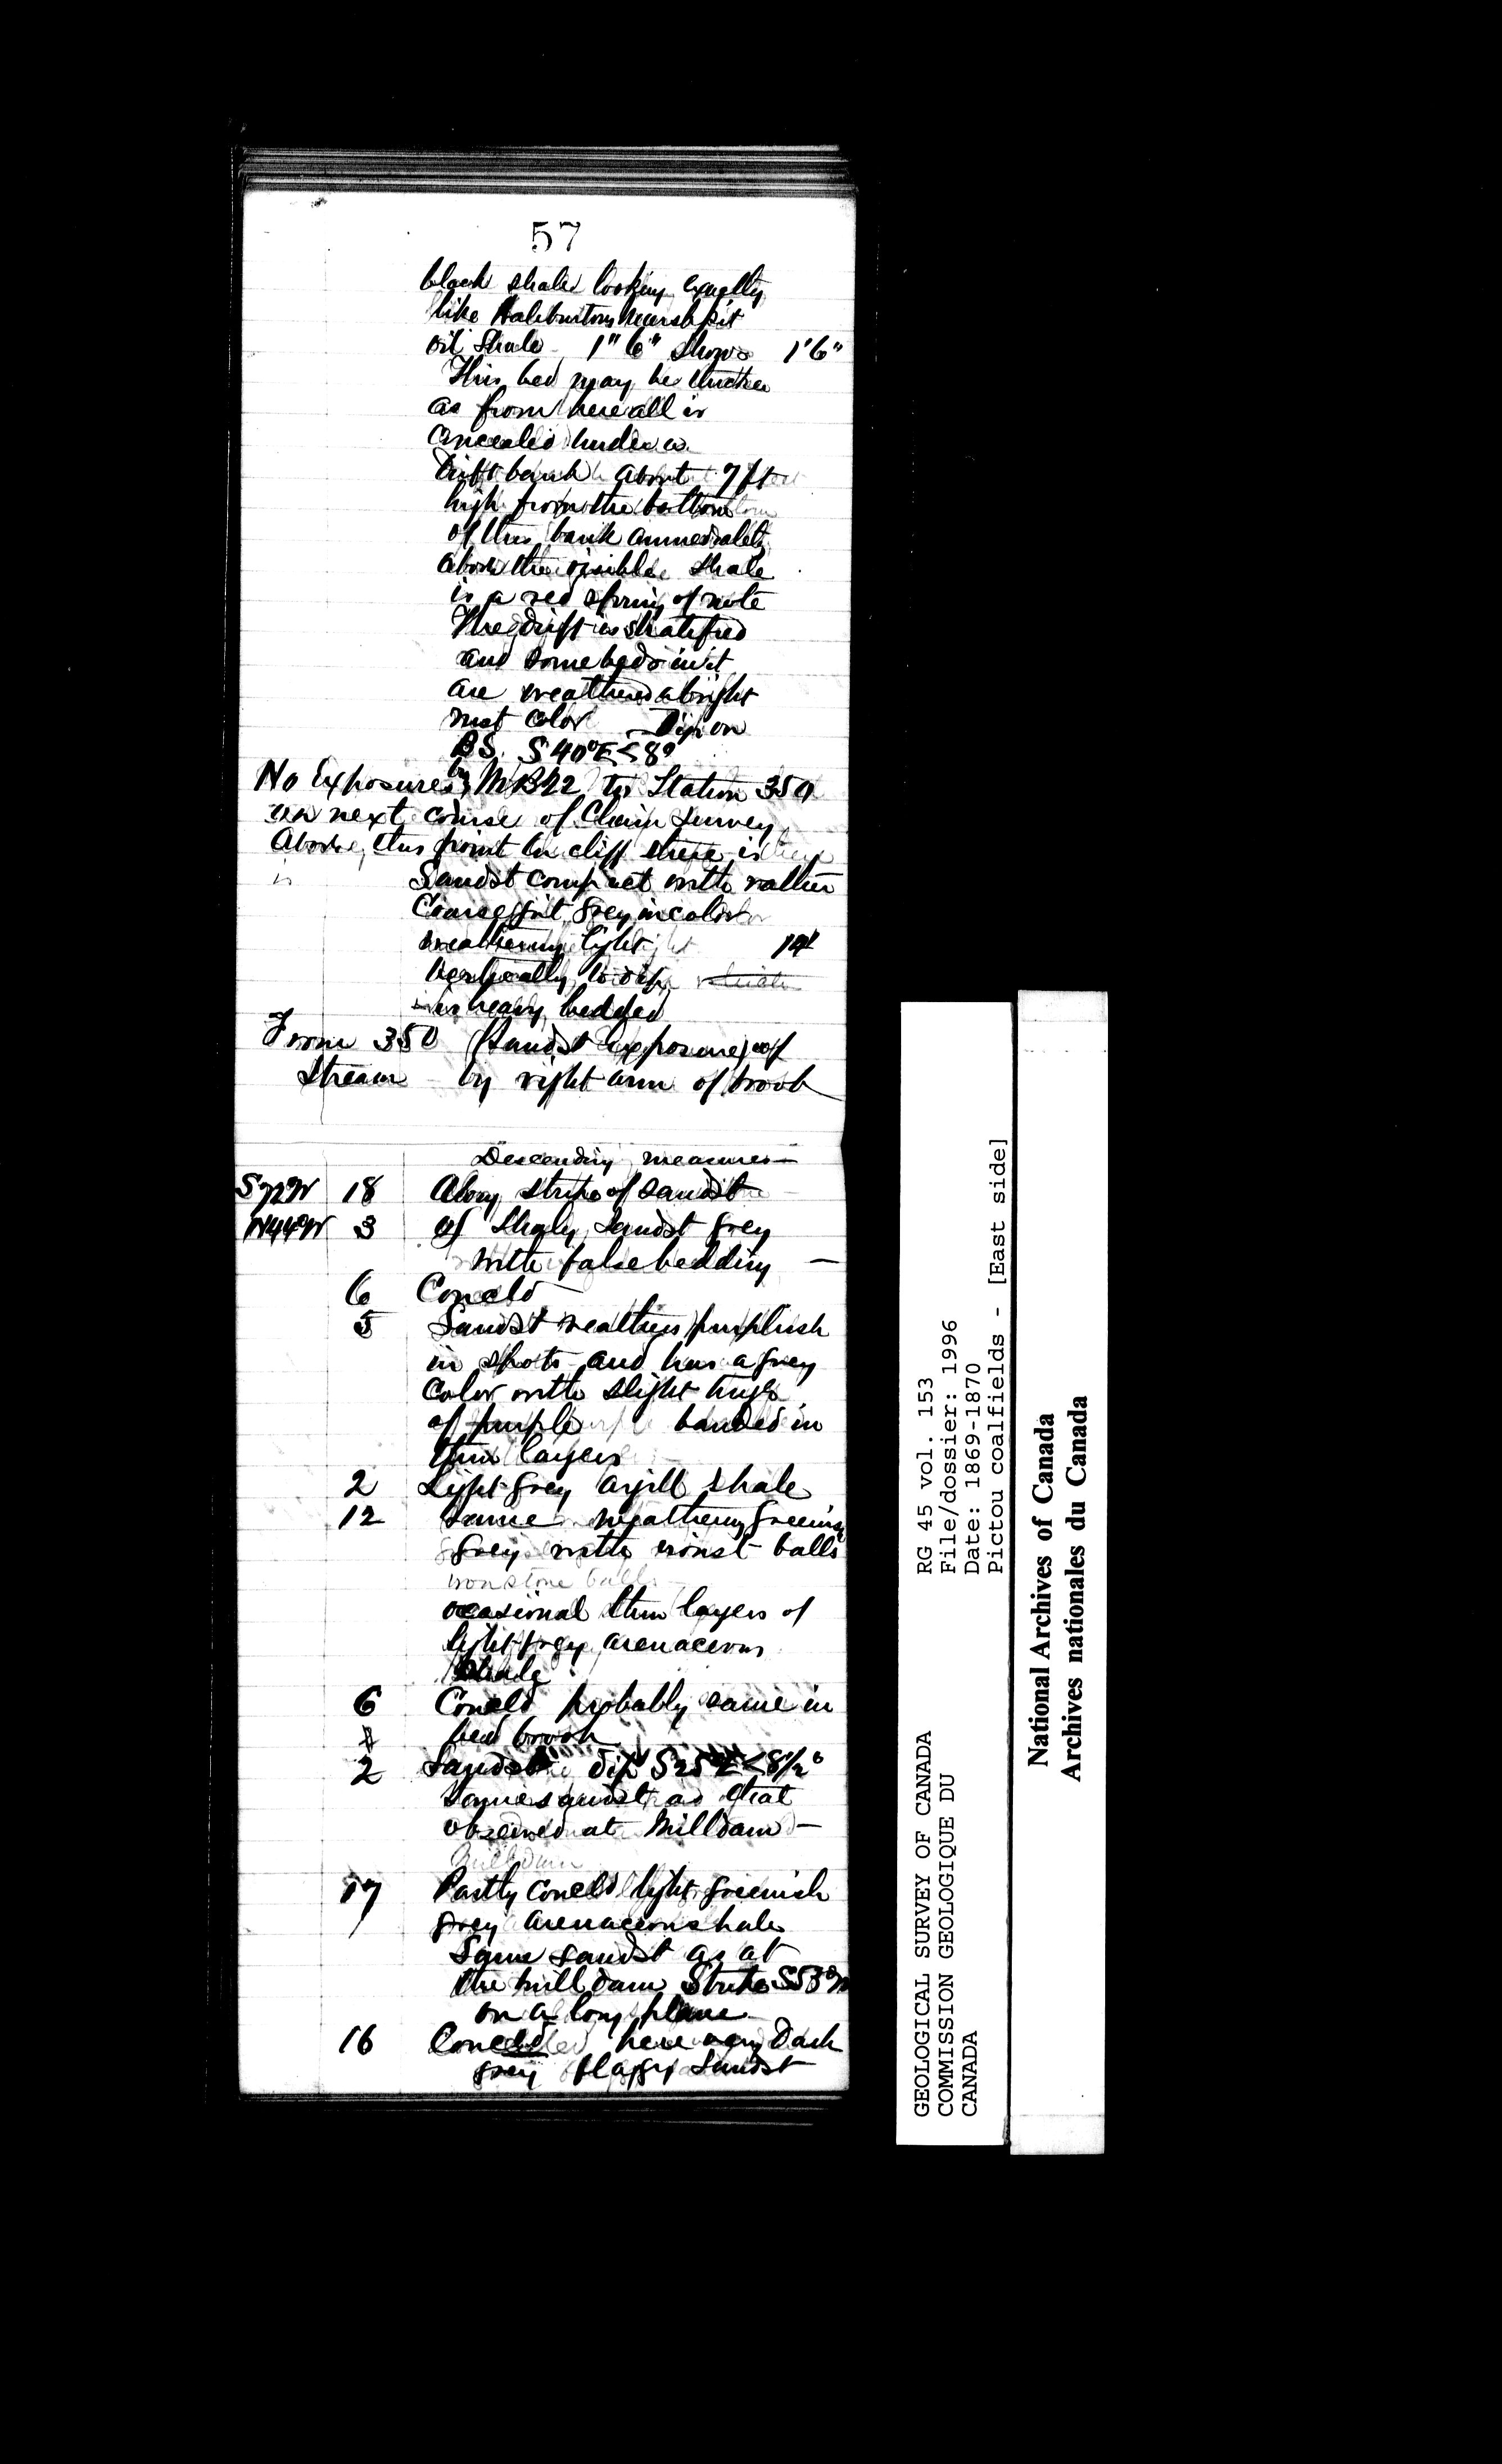 57
black shale looking exactly
like Haliburtons Marsh pit
oil shale - 1" 6" shows 1'6"
This bed may be thicker
as from here all is
concealed under a
drift bank about 7 ft
high from the bottom
of this bank immediately
above the visible shale
is a red spring of note
The drift is stratified
and some beds in it
are weathered a bright
rust color Dip on
BS. S 40° E < 8°
No Exposures by MB22 to Station 350
on next course of Chain Survey
Above this point in cliff there is
is Sandst compact with rather
Coarse grit grey in color
weathering light 14'
vertically to dip
is heavy bedded
From 350 (Sandst exposure) of
Stream by right arm of brook
Descending measures—
S72W 18 Along strike of sandst
N44W 3 of Shaly Sandst grey
with false bedding —
6 Conceld
5 Sandst weathers purplish
in spots and has a grey
color with slight tinge
of purple banded in
thin layers
2 Light grey argill shale
12 same weathering greenish
grey with ironst balls
ironstone balls
ocasional thin layers of
light grey arenaceous
Shale
6 Conceld probably same in
bed brook
2 Sandst dip S25°E < 8½°
same sandst as that
observed at Milldam —
Milldam
17 Partly conceld light greenish
grey arenaceous shale
Same sandst as at
the milldam Strike S53°W
on a long plane
16 Conceld here very Dark
grey flaggy Sandst
GEOLOGICAL SURVEY OF CANADA
COMMISSION GEOLOGIQUE DU
CANADA
RG 45 vol. 153
File/dossier: 1996
Date: 1869-1870
Pictou coalfields - [East side]
National Archives of Canada
Archives nationales du Canada